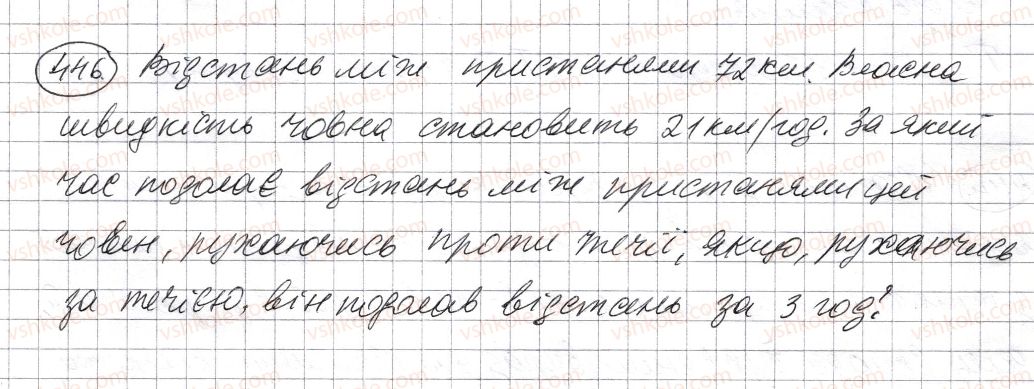 446. Відстань між пристанями 72 км. Власна
швидкість човна становить 21 км/год. За який
час подолає відстань між пристанями цей
човен, рухаючись проти течії, якщо, рухаючись
за течією, він подолав відстань за 3 год?